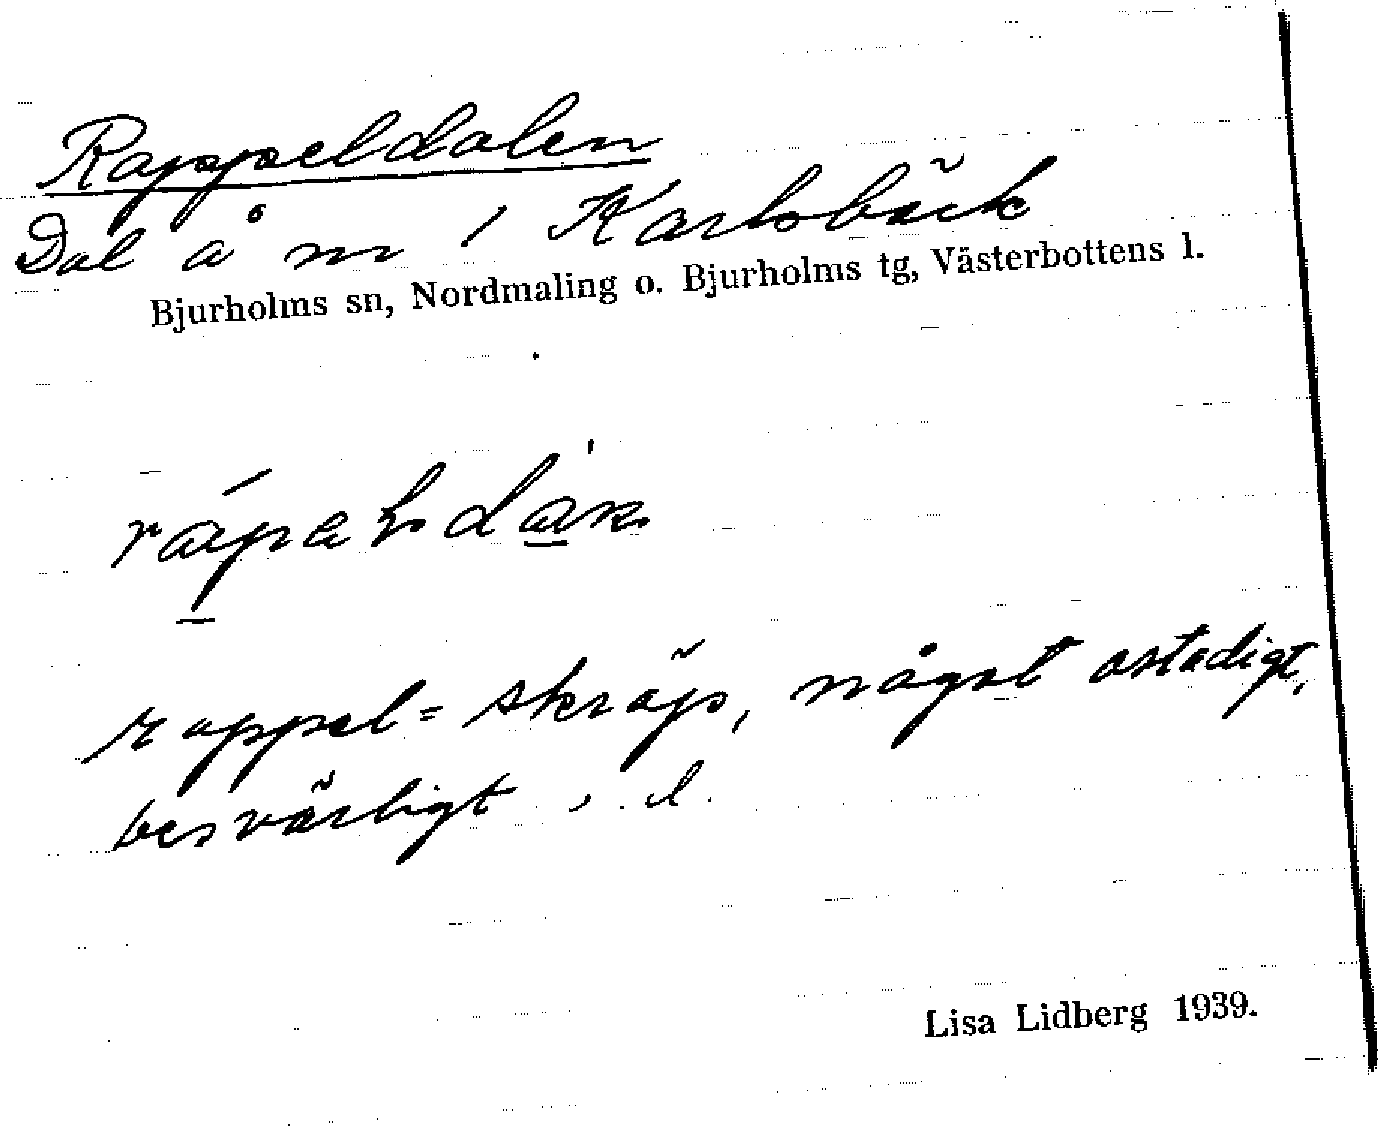 Rappeldalen
Dal å nr 1 Karlsbäck
Bjurholms sn, Nordmaling o. Bjurholms tg, Västerbottens l.
rappel = skräp, något ostadigt,
besvärligt
Lisa Lidberg 1939.